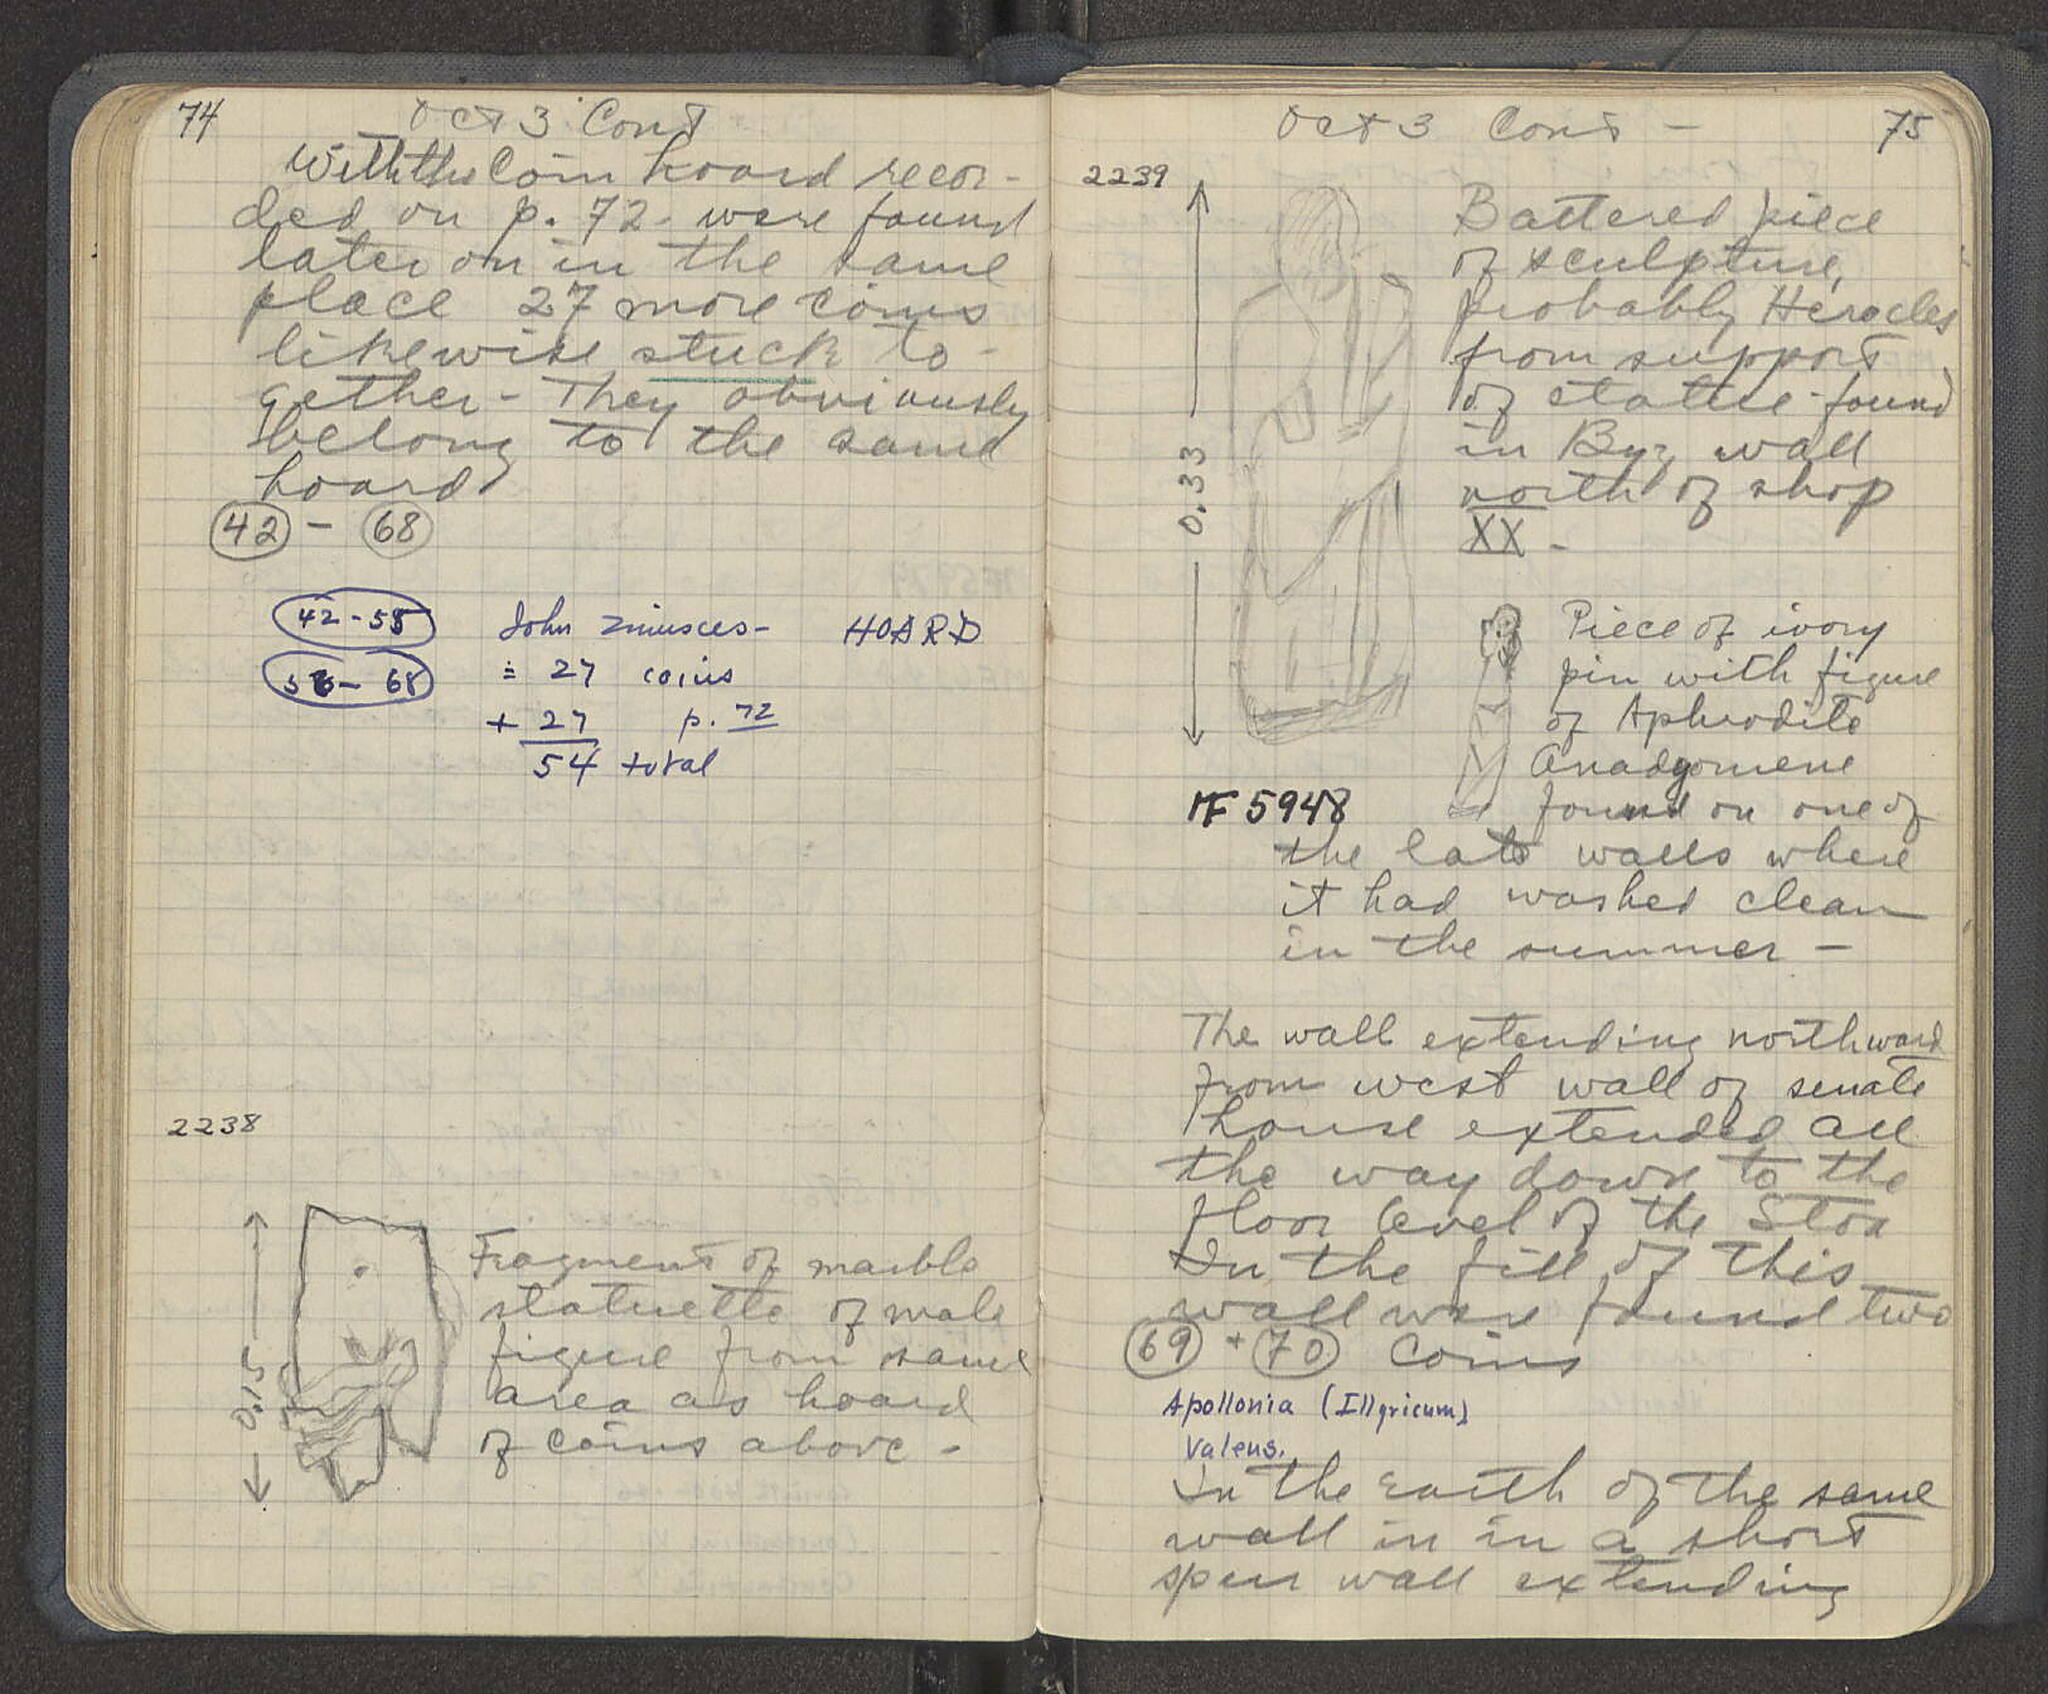 74
Oct 3 Cont
With the Coin hoard recor-
ded on p. 72- were found
later on in the same
place 27 more coins
likewise stuck to-
gether - They obviously
belong to the same
hoard
42 - 68
42-55 John Zimisces- HOARD
56-68 = 27 coins
+ 27 p. 72
54 total
2238
0.15
Fragment of marble
statuette of male
figure from same
area as hoard
of coins above -
Oct 3 Cont - 75
2239
0.33
Battered piece
of sculpture,
probably Heracles
from support
of statue - found
in Byz wall
north of shop
XX -
Piece of ivory
pin with figure
of Aphrodite
Anadyomene
MF 5948 found on one of
the late walls where
it had washed clean
in the summer -
The wall extending northward
from west wall of senate
house extended all
the way down to the
floor level of the Stoa
In the fill of this
wall were found two
69 + 70 Coins
Apollonia (Illyricum)
Valens.
In the earth of the same
wall in in a short
spur wall extending